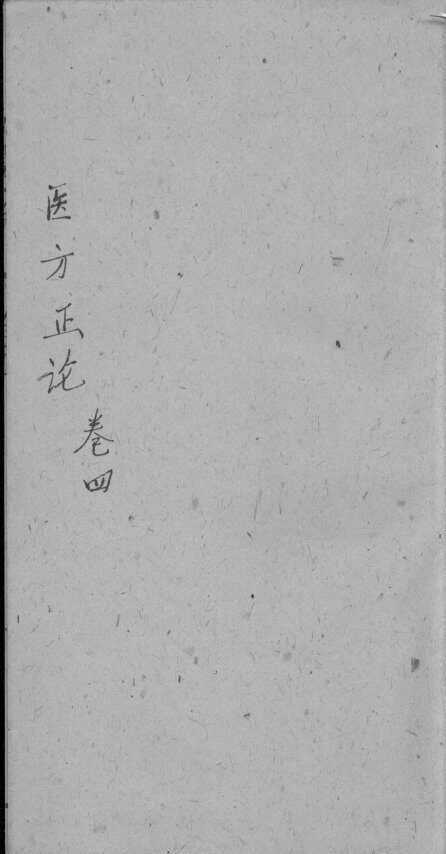 医方正论
卷四